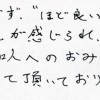 ず。"ほど良い
が感じられ、
人へのおみ
て頂いており